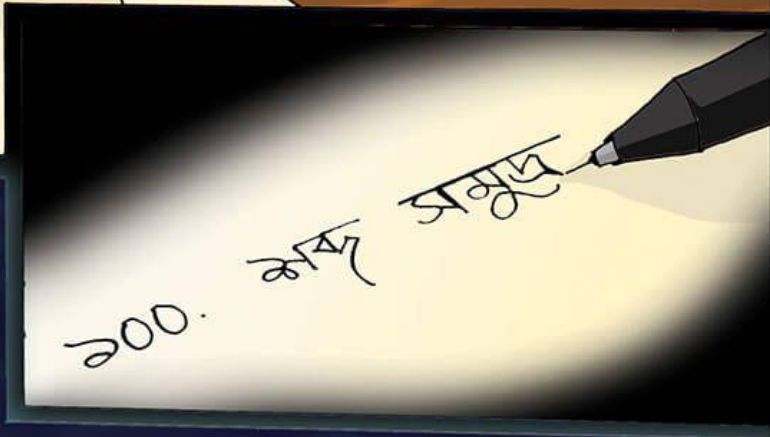 ১০০. শব্দ সমুদ্র